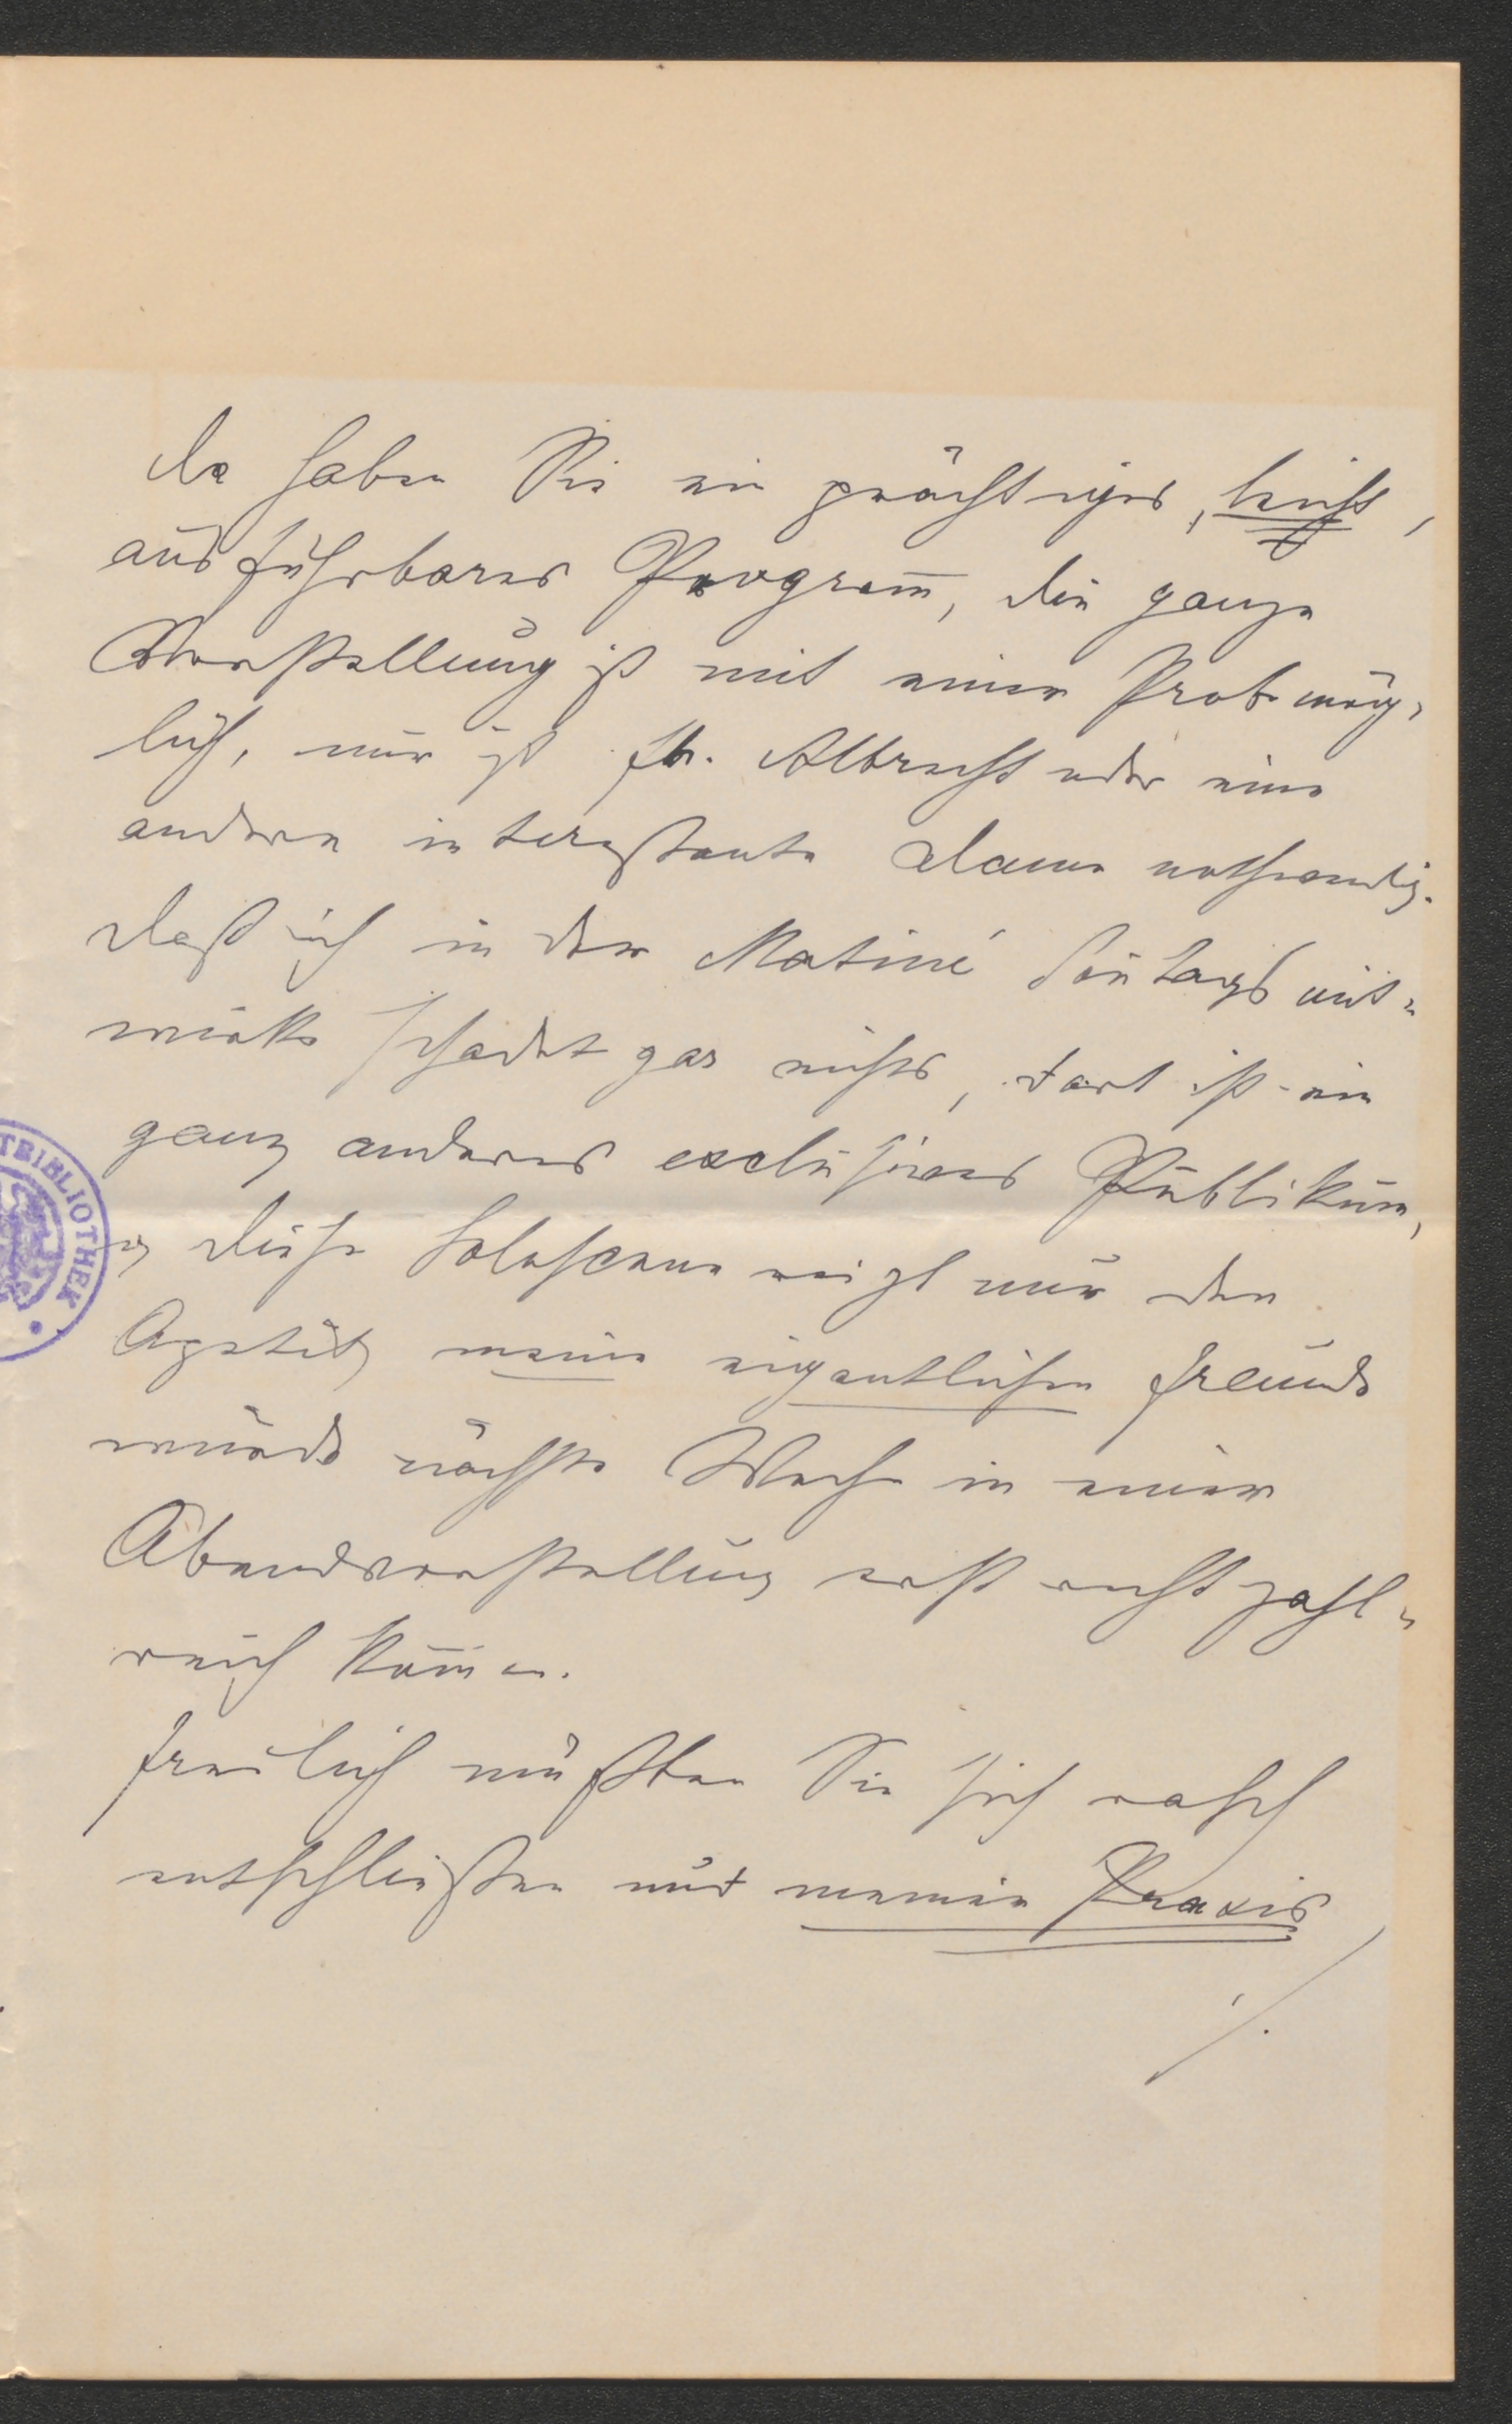 Da haben Sie ein prächtiges, leicht,
ausführbares Program̅, die ganze
Vorstellung ist mit einer Probe mög-
lich, nur ist Fr. Albrecht oder eine
andere interessante Dame nothwendig.
Daß ich in der Matiné Son̅tags mit-
wirke schadet gar nichts, dort ist ein
ganz anderes exclusives Publikum,
diese Soloscene reizt nur den
Apetit, meine eigentlichen Freunde
würde nächste Woche in einer
Abendvorstellung erst recht zahl-
reich kom̅en.
Freilich müßten Sie sich rasch
entschließen und meine Praxis
./.
TBIBLIOTHEK